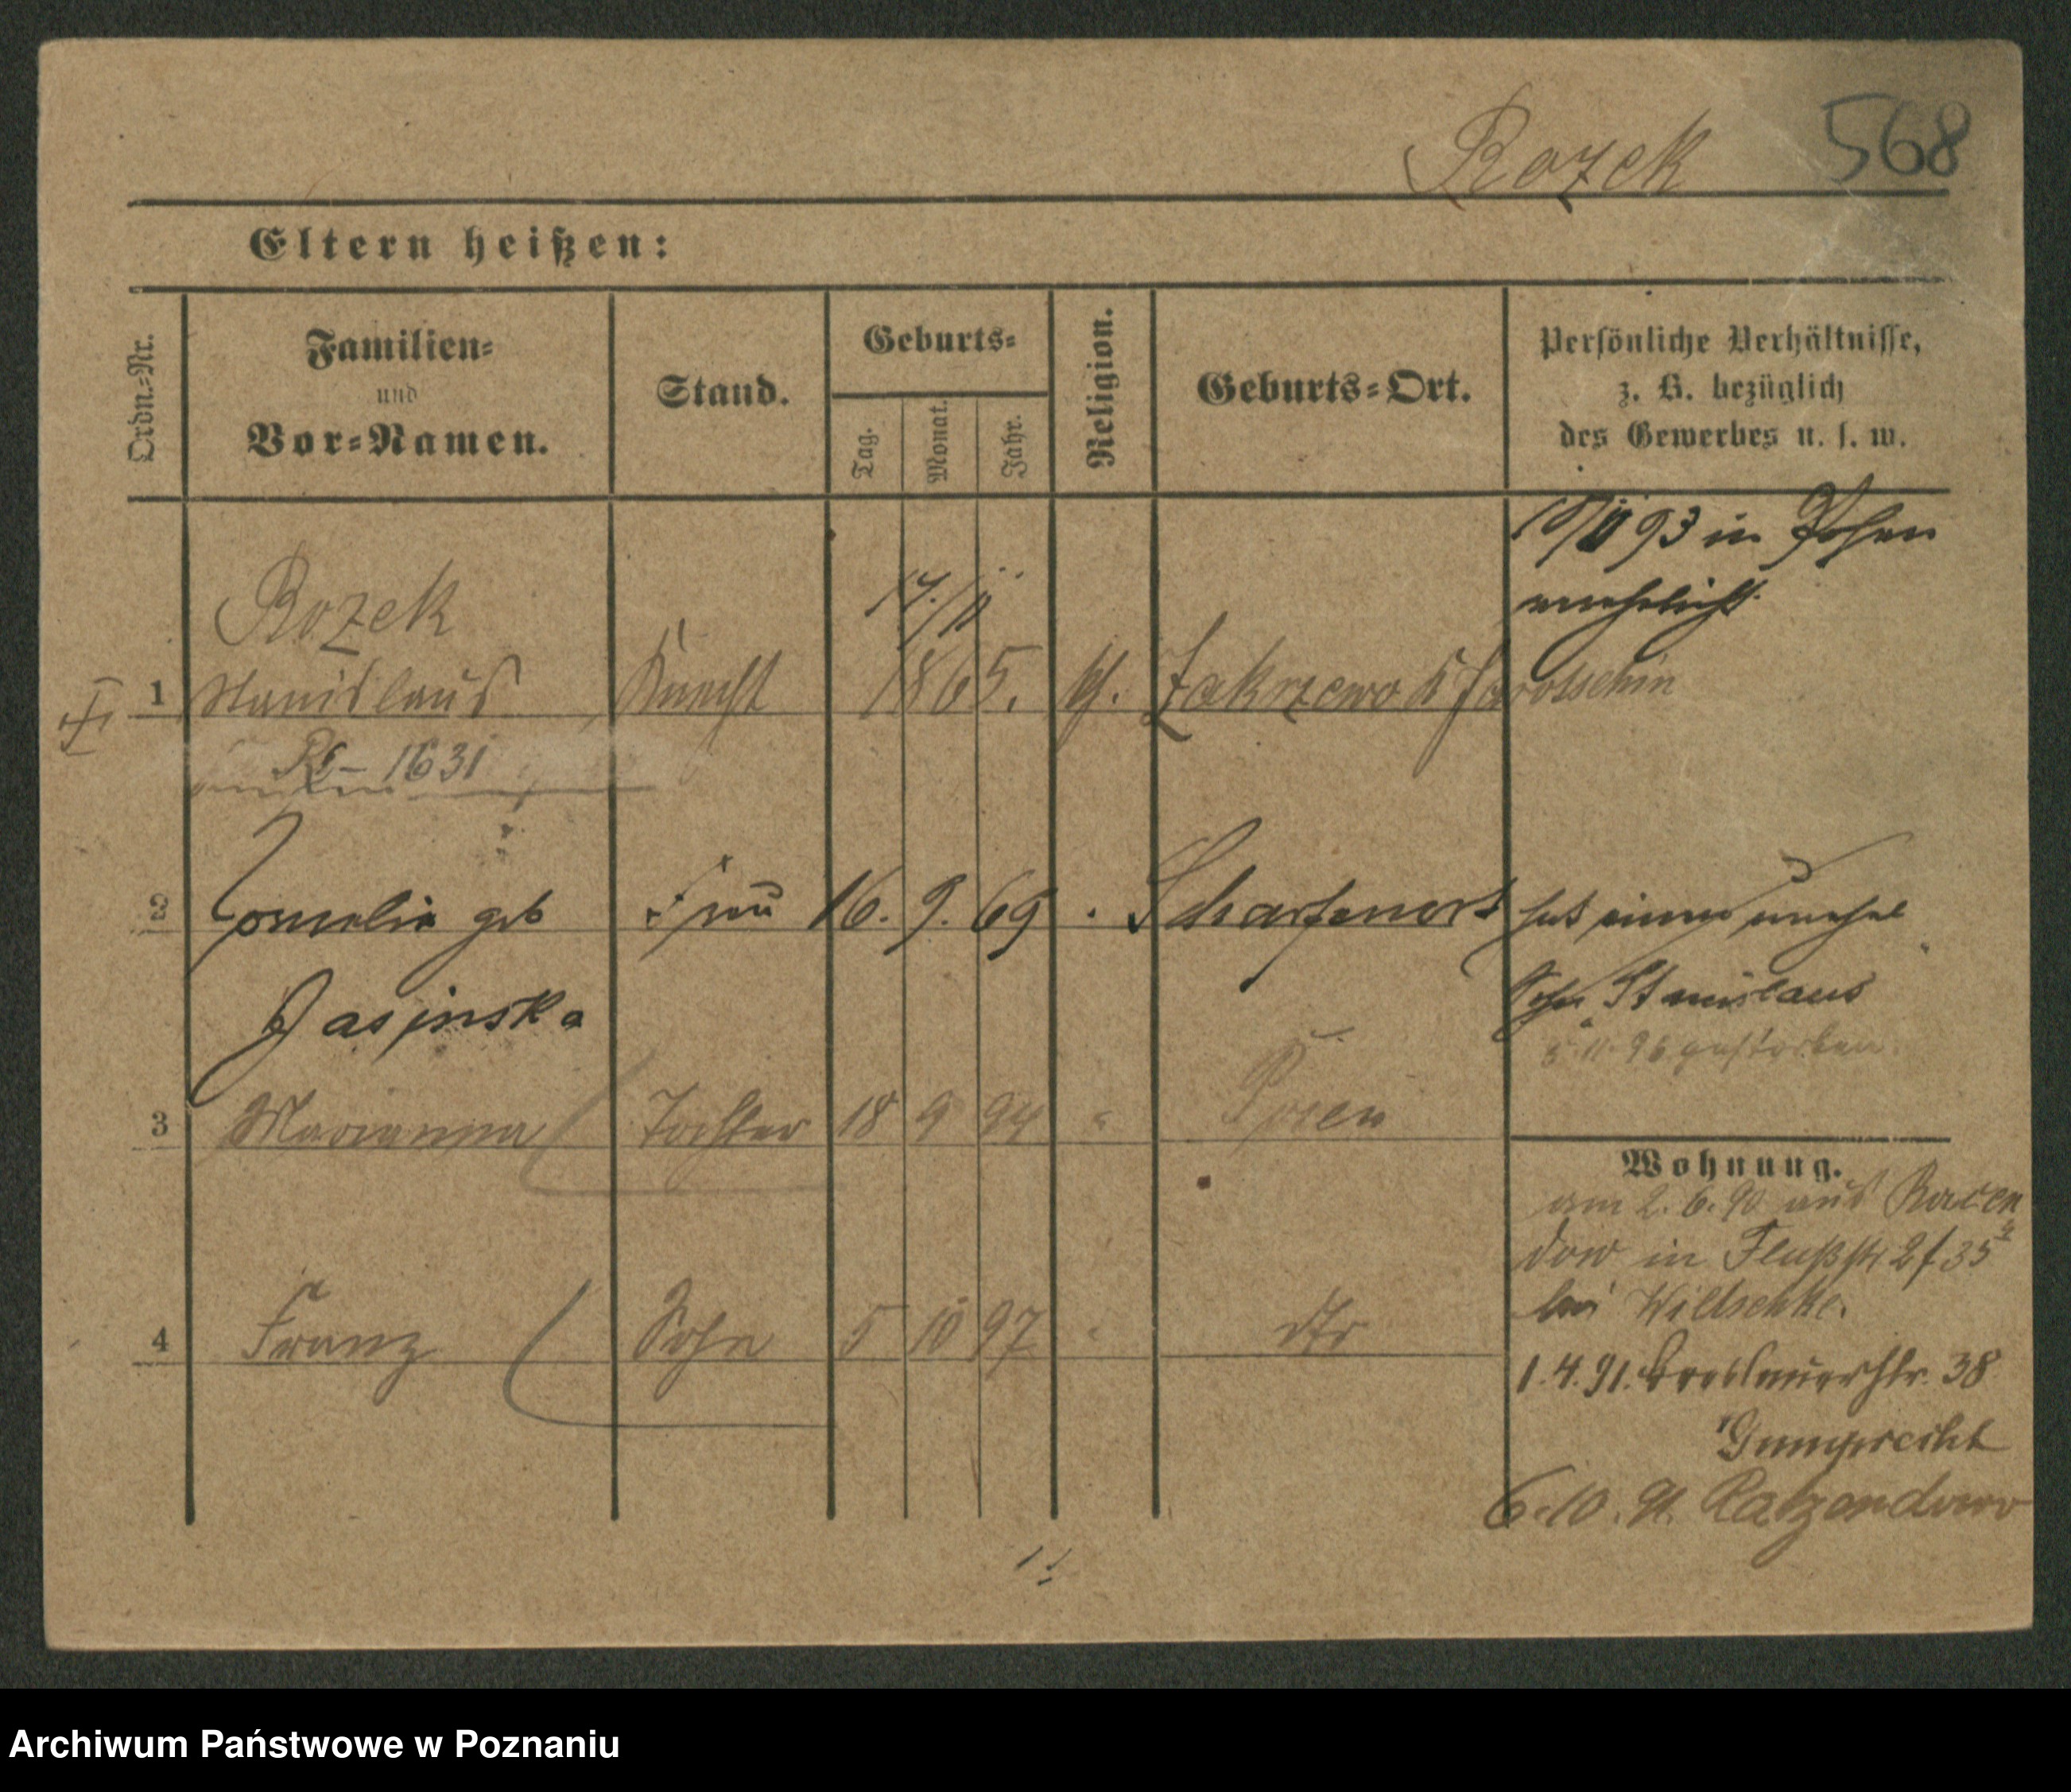 Rozek 568
Eltern heißen:
Ordn.-Nr.
Familien-
und
Vor-Namen.
Stand.
Geburts-
Tag.
Monat.
Jahr.
Religion.
Geburts-Ort.
Persönliche Verhältnisse,
z. B. bezüglich
des Gewerbes u. s. w.
93 in Posen
verehelicht
Rozek
1 Stanislaus Knecht 1865. kt. Zakrzewo K Jarotschin
1631
2 Cornelia geb Frau 16. 9. 69 Scharfenort hat einen unehel
Jasinska Sohn Stanislaus
5.11.96 gestorben
3 Marianna Tochter 18 9 94 " Posen
Wohnung.
am 2. 6. 90 aus Racen
dow in Flußstr 2 f 35
bei Wiltschke.
4 Franz Sohn 5 10 97 " dto
1.4.91. Breslauerstr. 38
Gumprecht
6.10.91. Ratzendowo
Archiwum Państwowe w Poznaniu